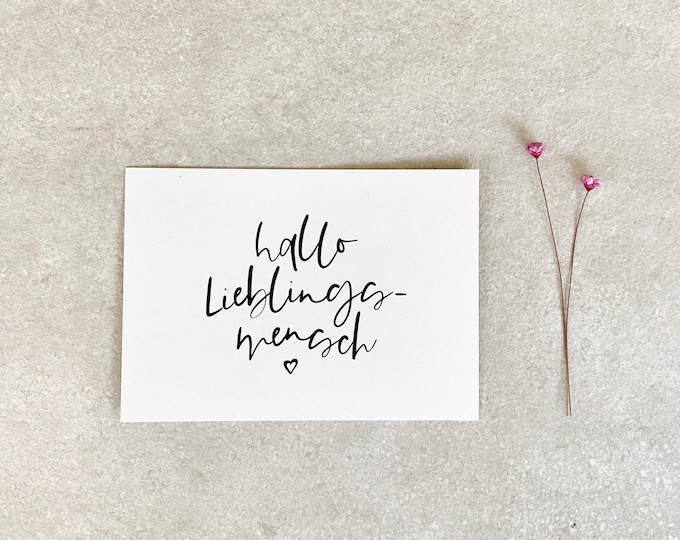 hallo
Lieblings-
mensch